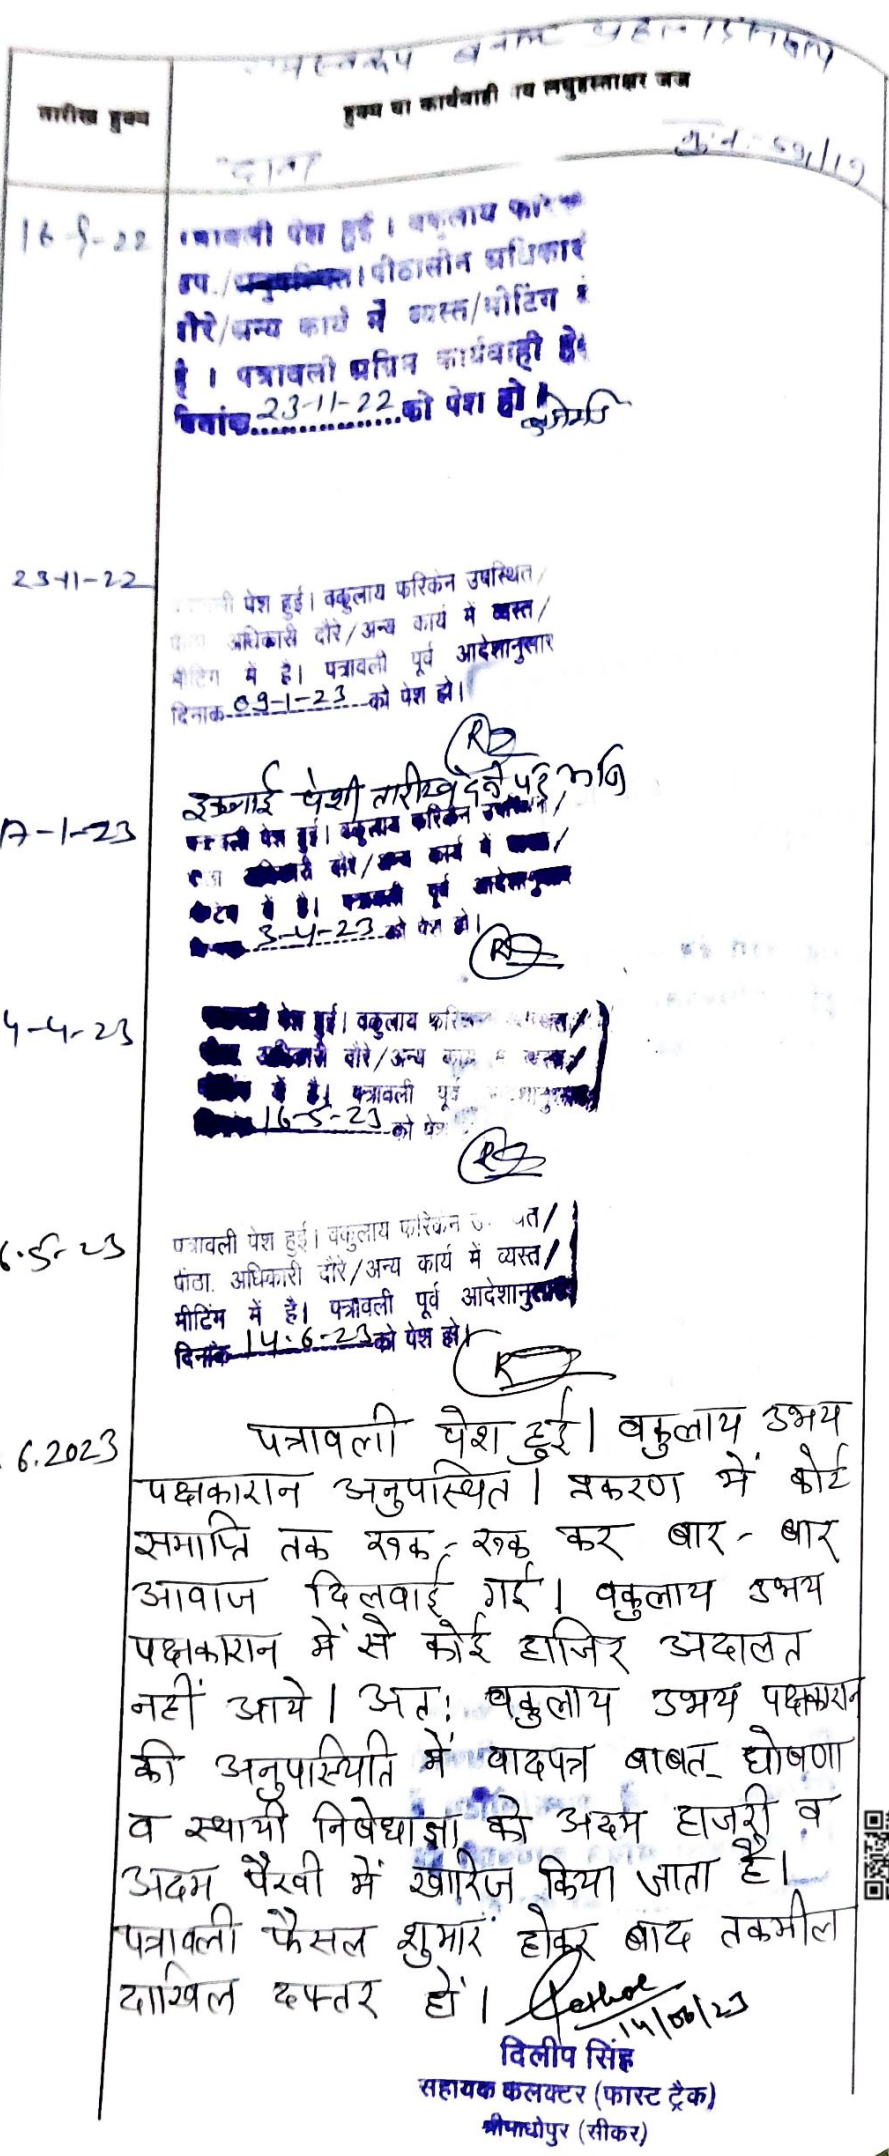 तारीख हुक्म
हुक्म या कार्यवाही मय लघुहस्ताक्षर जज
दावा
16-9-22
पत्रावली पेश हुई। वकुलाय
उप./ पीठासीन अधिकारी
दौरे/अन्य कार्य में व्यस्त/मीटिंग में
है। पत्रावली अग्रिम कार्यवाही हेतु
दिनांक 23-11-22 को पेश हो।
23-11-22
पेश हुई। वकुलाय फरिकेन उपस्थित/
अधिकारी दौरे/अन्य कार्य में व्यस्त/
मीटिंग में है। पत्रावली पूर्व आदेशानुसार
दिनांक 09-1-23 को पेश हो।
पेशी तारीख
-1-23
पेश हुई। वकुलाय फरिकेन
दौरे/अन्य कार्य में
में है। पत्रावली पूर्व आदेशानुसार
3-4-23 को पेश हो।
4-4-23
पेश हुई। वकुलाय
अधिकारी दौरे/अन्य
में है। पत्रावली पूर्व
16-5-23 को
6.5-23
पत्रावली पेश हुई। वकुलाय फरिकेन
पीठा. अधिकारी दौरे/अन्य कार्य में व्यस्त/
मीटिंग में है। पत्रावली पूर्व आदेशानुसार
दिनांक 14.6-23 को पेश हो।
6.2023
पत्रावली पेश हुई। वकुलाय उभय
पक्षकारान अनुपस्थित। प्रकरण में कोर्ट
समाप्ति तक रुक-रुक कर बार-बार
आवाज दिलवाई गई। वकुलाय उभय
पक्षकारान में से कोई हाजिर अदालत
नहीं आये। अतः वकुलाय उभय पक्षकारान
की अनुपस्थिति में वादपत्र बाबत् घोषणा
व स्थायी निषेधाज्ञा को अदम हाजरी व
अदम पैरवी में खारिज किया जाता है।
पत्रावली फैसल शुमार होकर बाद तकमील
दाखिल दफ्तर हों।
14/06/23
दिलीप सिंह
सहायक कलक्टर (फास्ट ट्रैक)
श्रीमाधोपुर (सीकर)